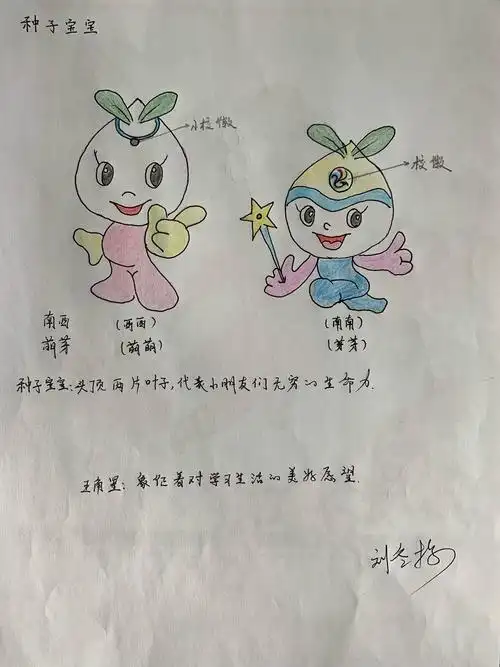 种子宝宝
小校徽
校徽
南西 (西西) (南南)
萌芽 (萌萌) (芽芽)
种子宝宝:头顶两片叶子,代表小朋友们无穷的生命力.
五角星:象征着对学习生活的美好愿望.
刘冬梅